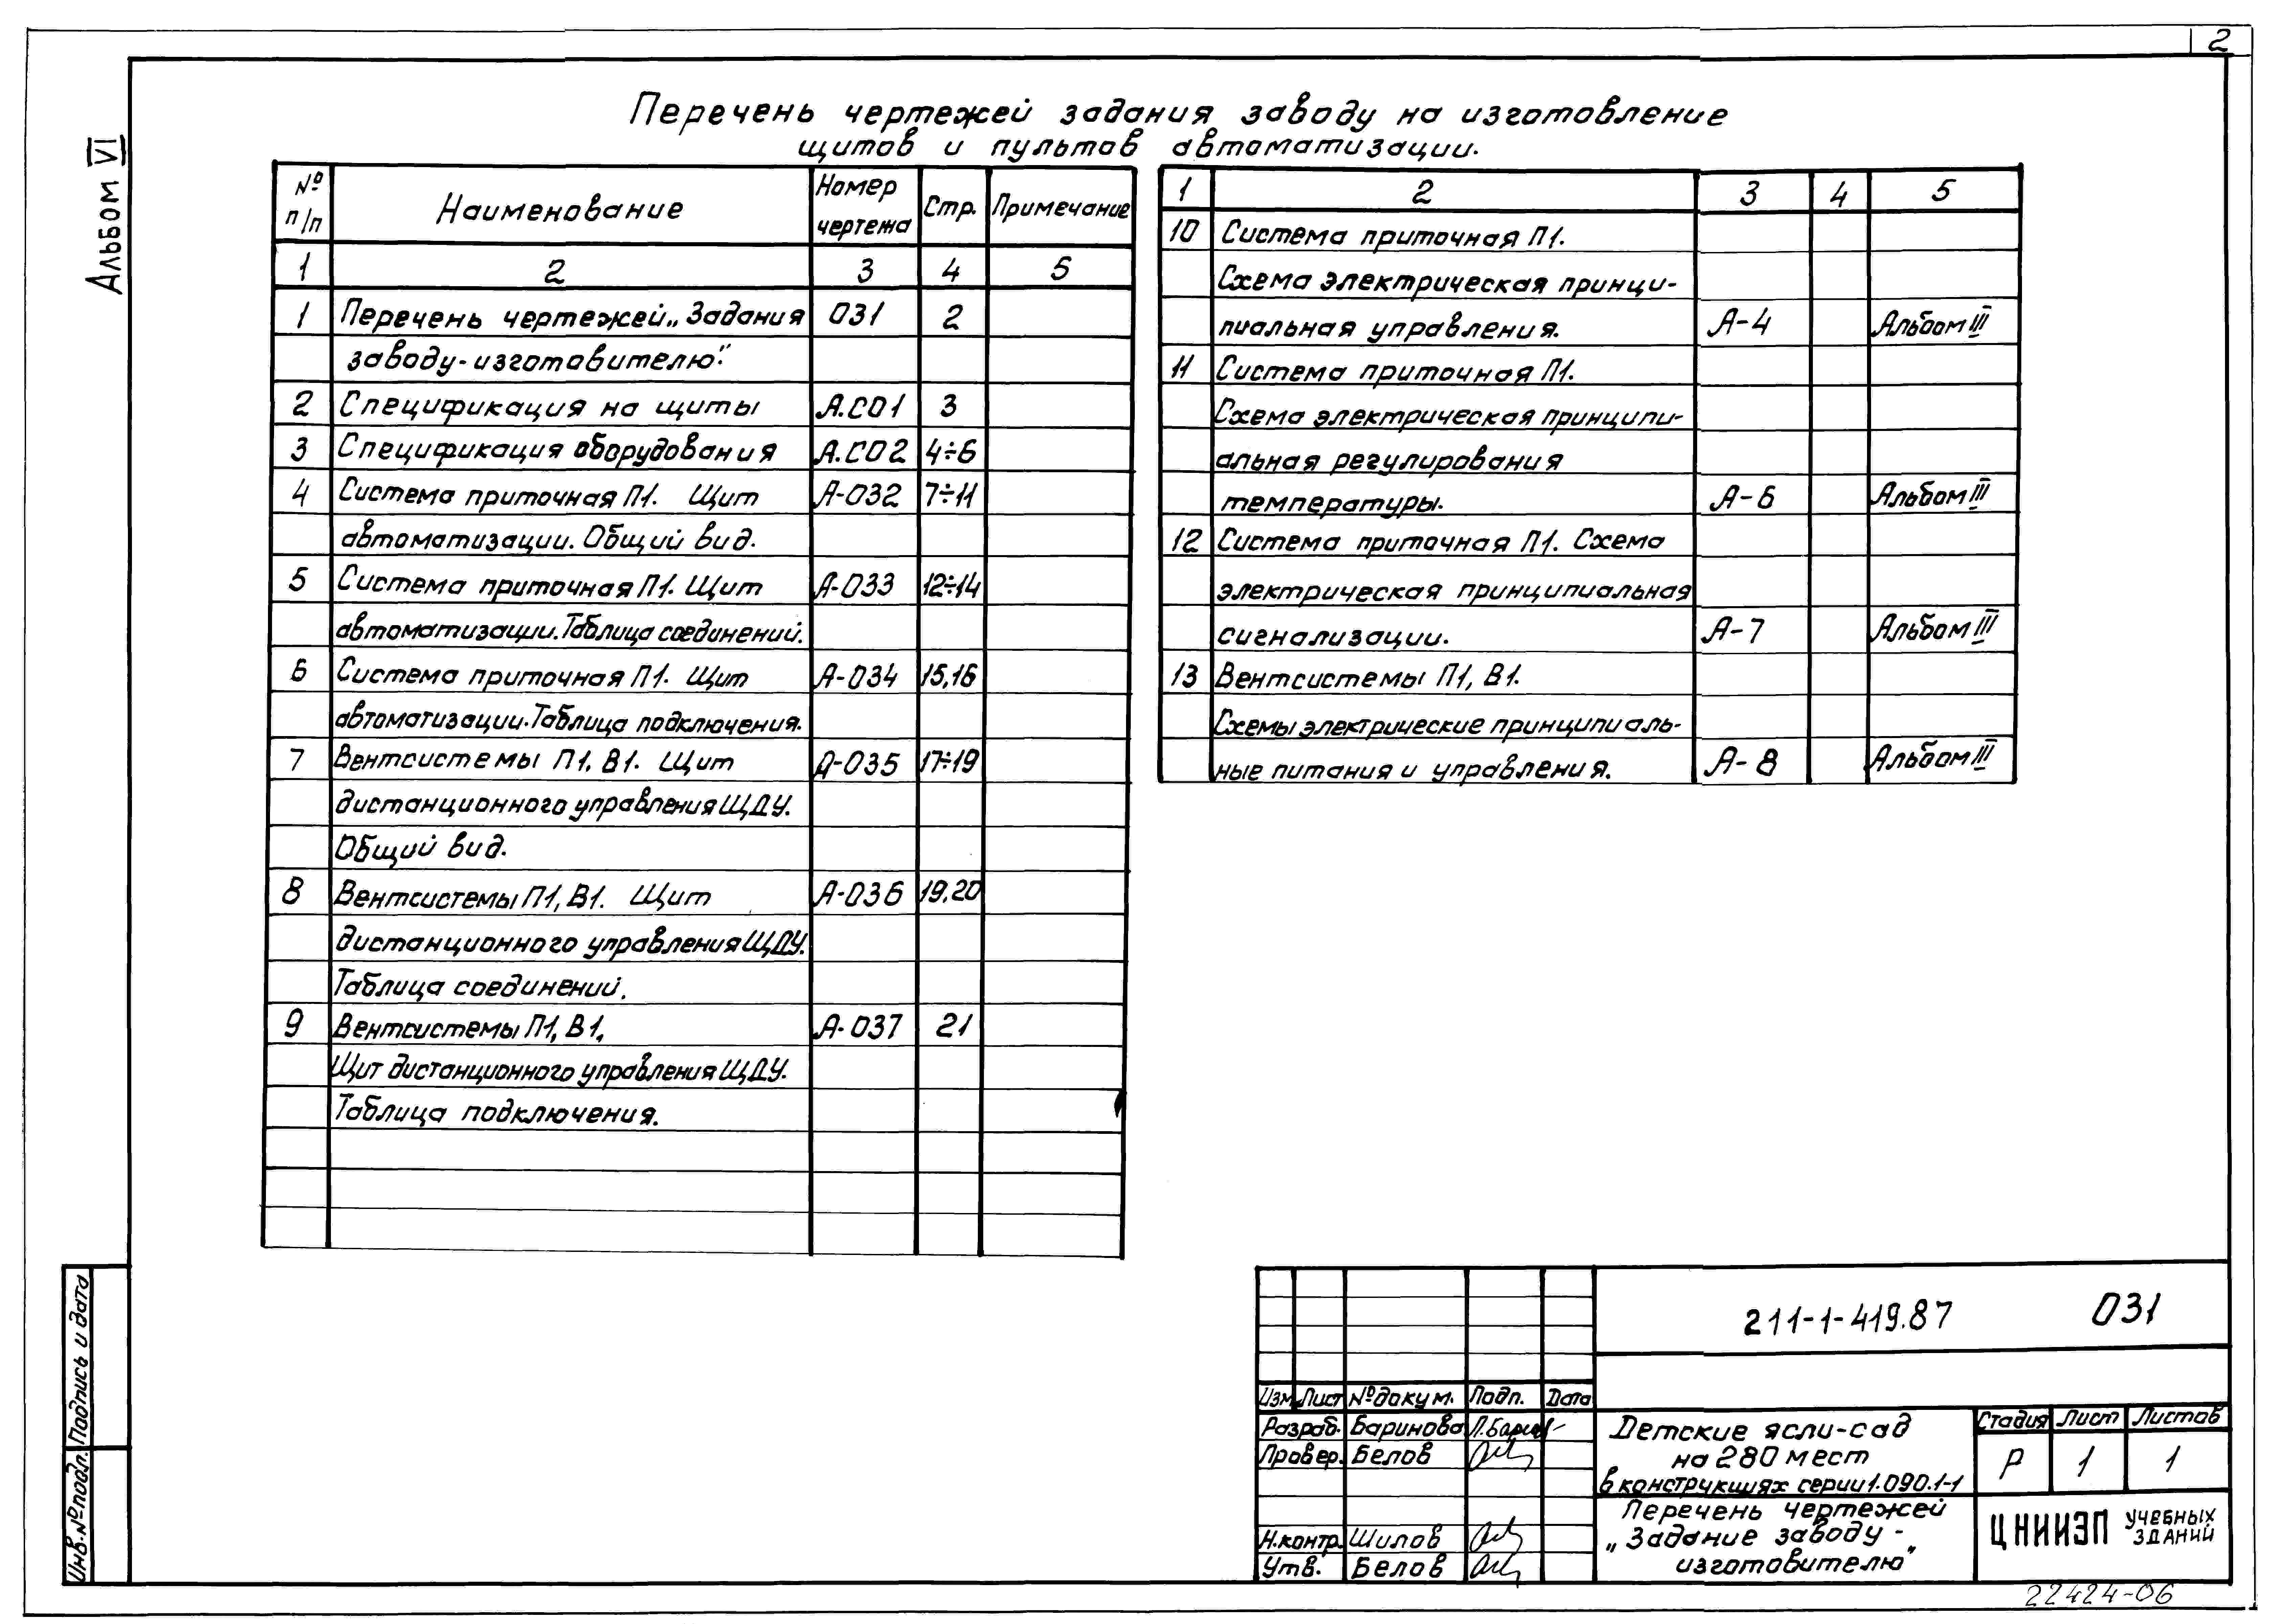 2
Альбом VI
Перечень чертежей задания заводу на изготовление
щитов и пультов автоматизации.
№ п/п Наименование Номер чертежа Стр. Примечание
1 2 3 4 5
1 Перечень чертежей „Задания 031 2
заводу-изготовителю".
2 Спецификация на щиты А.СО1 3
3 Спецификация оборудования А.СО2 4÷6
4 Система приточная П1. Щит А-032 7÷11
автоматизации. Общий вид.
5 Система приточная П1. Щит А-033 12÷14
автоматизации. Таблица соединений.
6 Система приточная П1. Щит А-034 15,16
автоматизации. Таблица подключения.
7 Вентсистемы П1, В1. Щит А-035 17÷19
дистанционного управления ЩДУ.
Общий вид.
8 Вентсистемы П1, В1. Щит А-036 19,20
дистанционного управления ЩДУ.
Таблица соединений.
9 Вентсистемы П1, В1. А-037 21
Щит дистанционного управления ЩДУ.
Таблица подключения.
1 2 3 4 5
10 Система приточная П1.
Схема электрическая принци-
пиальная управления. А-4 Альбом III
11 Система приточная П1.
Схема электрическая принципи-
альная регулирования
температуры. А-6 Альбом III
12 Система приточная П1. Схема
электрическая принципиальная
сигнализации. А-7 Альбом III
13 Вентсистемы П1, В1.
Схемы электрические принципиаль-
ные питания и управления. А-8 Альбом III
Инв. № подл. Подпись и дата
211-1-419.87 031
Изм. Лист № докум. Подп. Дата
Разраб. Баринова
Провер. Белов
Н.контр. Шилов
Утв. Белов
Детские ясли-сад
на 280 мест
в конструкциях серии 1.090.1-1
Стадия Лист Листов
Р 1 1
Перечень чертежей
„Задание заводу-
изготовителю"
ЦНИИЭП УЧЕБНЫХ ЗДАНИЙ
22424-06